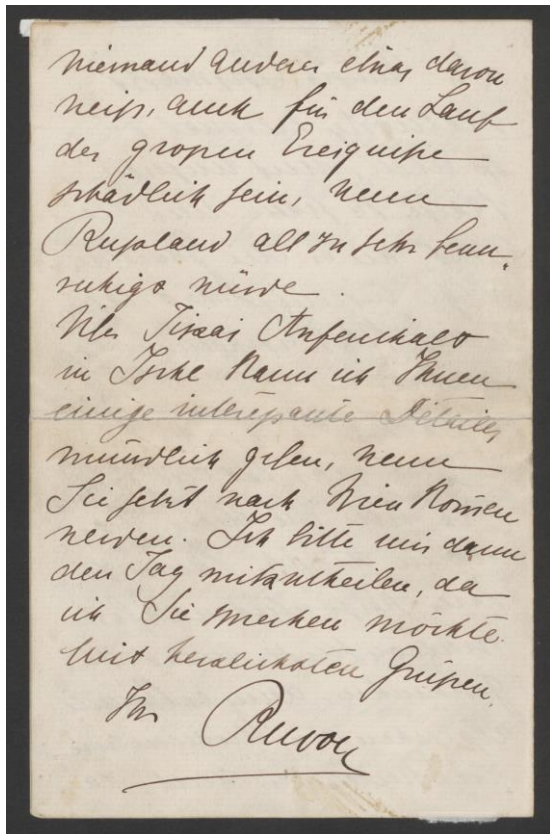 niemand anderer etwas davon
weiß, auch für den Lauf
der großen Ereigniße
schädlich sein, wenn
Rußland allzu sehr beun-
ruhigt würde.
Über Tiszas Aufenthalt
in Ischl kann ich Ihnen
einige interessante Details
mündlich geben, wenn
Sie jetzt nach Wien kom̄en
werden. Ich bitte mir dann
den Tag mitzutheilen, da
ich Sie sprechen möchte.
Mit herzlichsten Grüßen
Ihr Rudolf